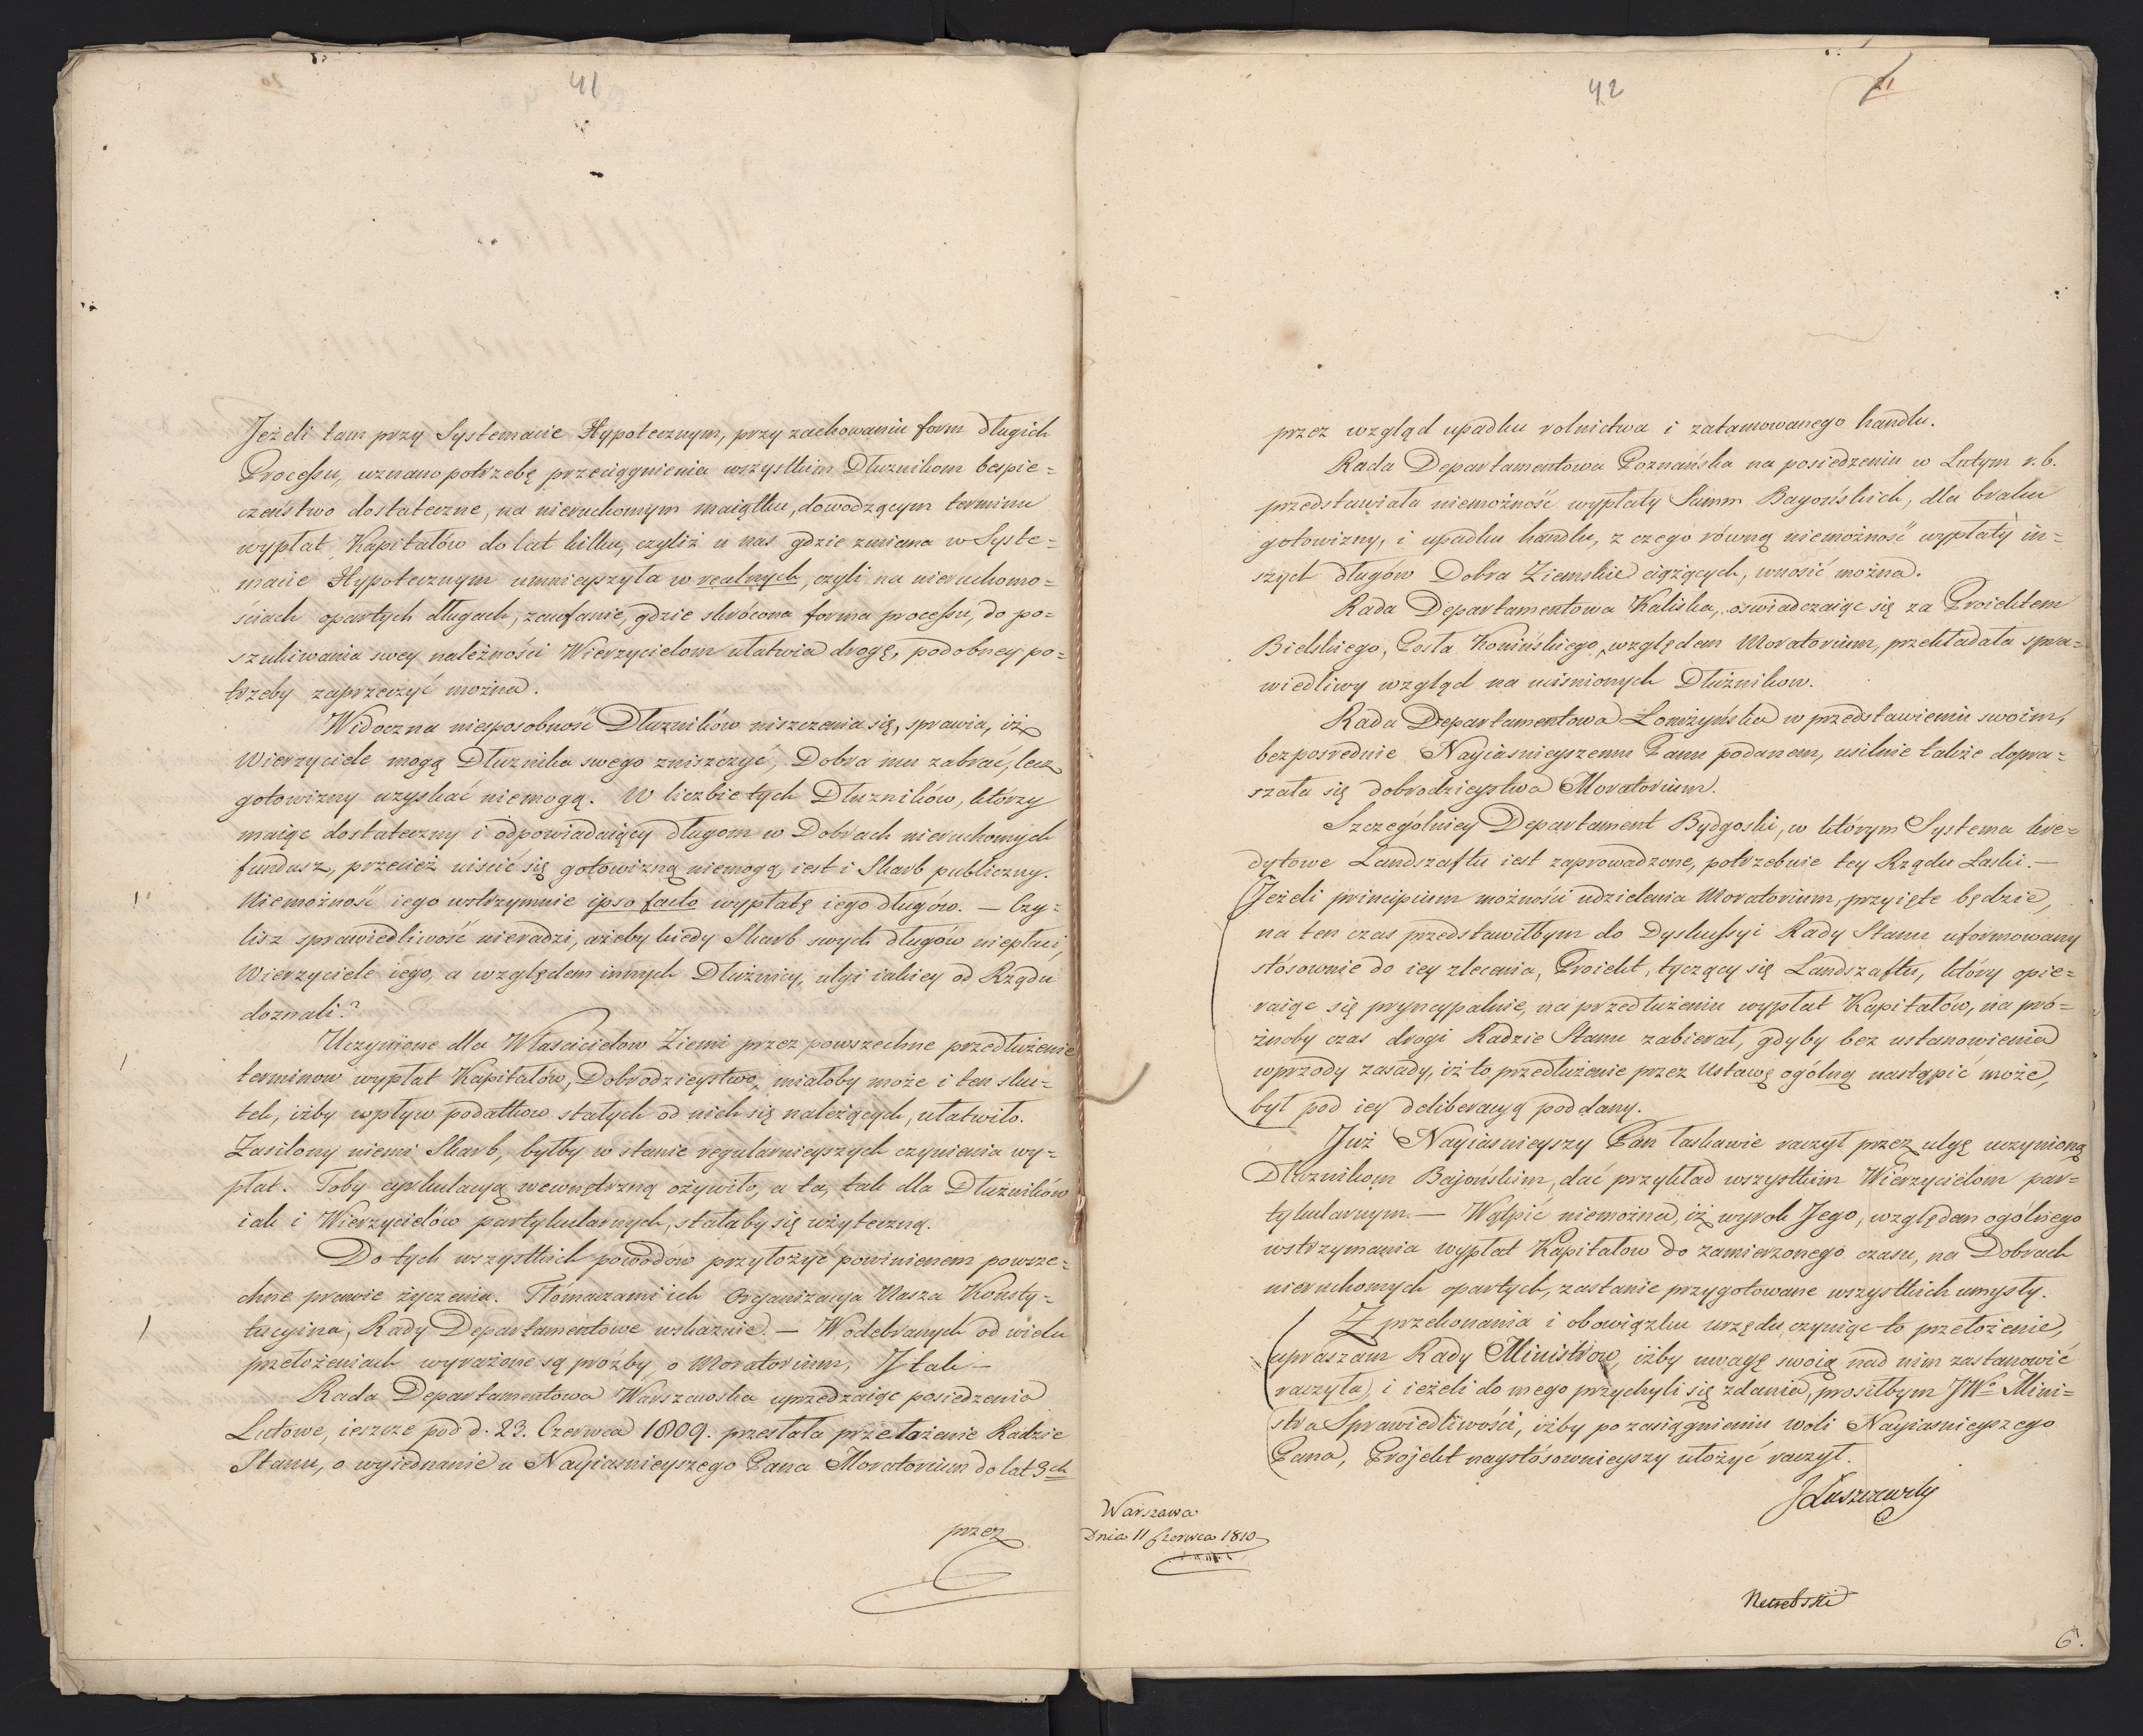 41
Jeżeli tam przy Systemacie Hypotecznym, przy zachowaniu form długich
Processu, uznano potrzebę przeciągnienia wszystkim Dłuznikom bespie=
czeństwo dostateczne, na nieruchomym maiątku, dowodzącym terminu
wypłat Kapitałów do lat kilku, czyliż u nas gdzie zmiana w Syste=
macie Hypotecznym umnieyszyła w realnych, czyli na nieruchomo=
sciach opartych długach, zaufanie, gdzie skrócona forma processu, do po=
szukiwania swey należności Wierzycielom ułatwia drogę, podobney po=
trzeby zaprzeczyć można.
Widoczna niesposobność Dłuzników niszczenia się, sprawia, iż
Wierzyciele mogą Dłuznika swego zniszczyć, Dobra mu zabrać, lecz
gotowizny uzyskać niemogą. W liczbie tych Dłuzników, którzy
maiąc dostateczny i odpowiadaiący długom w Dobrach nieruchomych
fundusz, przecież uiścić się gotowizną niemogą, iest i Skarb publiczny.
Niemożność iego wstrzymuie ipso facto wypłatę iego długów. — Czy=
lisz sprawiedliwość nieradzi, ażeby kiedy Skarb swych długów niepłaci,
Wierzyciele iego, a względem innych Dłużnicy, ulgi iakiey od Rządu
doznali?
Uczynione dla Właścicielow Ziemi przez powszechne przedłużenie
terminow wypłat Kapitałów, Dobrodzieystwo, miałoby może i ten sku=
tek, iżby wpływ podatkow stałych od nich się należących, ułatwiło.
Zasilony niemi Skarb, byłby w stanie regularnieyszych czynienia wy=
płat. Toby cyrkulacyą wewnętrzną ożywiło, a ta, tak dla Dłużników
iak i Wierzycielów partykularnych, stałaby się użyteczną.
Do tych wszystkich powodow przyłożyć powinienem powsze=
chne prawie życzenia. Tłómaczami ich Organizacya Nasza Konsty=
tucyina, Rady Departamentowe wskaznie. — W odebranych od wielu
przełożeniach wyrażone są proźby o Moratorium, I tak —
Rada Departamentowa Warszawska uprzedzaiąc posiedzenia
Lutowe, ieszcze pod d. 23. Czerwca 1809. przesłała przełożenie Radzie
Stanu, o wyiednanie u Nayiasnieyszego Pana Moratorium do lat 3ch
przez
42
21
przez wzgląd upadku rolnictwa i zatamowanego handlu.
Rada Departamentowa Poznańska na posiedzeniu w Lutym r. b.
przedstawiała niemożność wypłaty Summ Bayońskich, dla braku
gotowizny, i upadku handlu, z czego równą niemożność wypłaty in=
szych długów Dobra Ziemskie ciążących, wnosić można.
Rada Departamentowa Kaliska, oswiadczaiąc się za Proiektem
Bielskiego, Posła Konińskiego względem Moratorium, przekładała spra=
wiedliwy wzgląd na uciśnionych Dłużnikow.
Rada Departamentowa Łomżyńska w przedstawieniu swoim,
bezposrednie Nayiasnieyszemu Panu podanem, usilnie także dopra=
szała się dobrodzieystwa Moratorium.
Szczególniey Departament Bydgoski, w którym Systema kre=
dytowe Landszaftu iest zaprowadzone, potrzebuie tey Rządu Łaski. —
Jeżeli principium możności udzielenia Moratorium, przyięte będzie,
na ten czas przedstawiłbym do Dyskussyi Rady Stanu uformowany
stósownie do iey zlecenia, Proiekt, tyczący się Landszaftu, który opie=
raiąc się pryncypalnie, na przedłużeniu wypłat Kapitałów, na pró=
żnoby czas drogi Radzie Stanu zabierał, gdyby bez ustanowienia
wprzody zasady, iż to przedłużenie przez Ustawę ogólną nastąpić może,
był pod iey deliberacyą poddany.
Już Nayiasnieyszy Pan łaskawie raczył przez ulgę uczynioną
Dłuznikom Bajońskim, dać przykład wszystkim Wierzycielom par=
tykularnym. — Wątpić niemożna, iż wyrok Jego, względem ogólnego
wstrzymania wypłat Kapitałow do zamierzonego czasu, na Dobrach
nieruchomych opartych, zastanie przygotowane wszystkich umysły.
Z przekonania i obowiązku urzędu czyniąc to przełożenie,
upraszam Rady Ministrow, iżby uwagę swoią nad nim zastanowić
raczyła, i ieżeli do mego przychyli się zdania, prosiłbym JWo Mini=
stra Sprawiedliwości, iżby po zasiągnieniu woli Nayiasnieyszego
Pana, Projekt naystósownieyszy ułożyć raczył.
JŁuszczewsky
Warszawa
Dnia 11 Czerwca 1810
Netrebski
6.